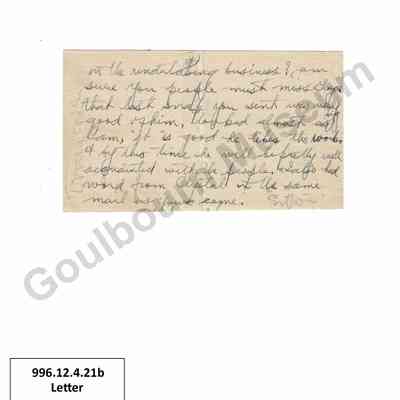 on the undertaking business? I am
sure you people must miss
that last snap you sent was very
good of him, too bad
it is good he likes the work
& by this time he will be pretty well
acquainted with the people. I also had
word from in the same
mail as yours came.
Goulbourn Museum
996.12.4.21b
Letter